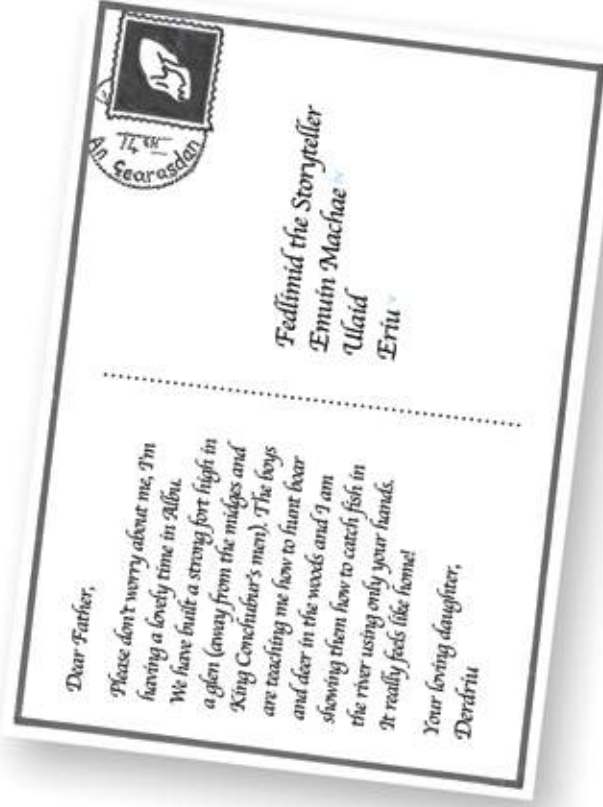 Dear Father,
Please don't worry about me, I'm
having a lovely time in Albu.
We have built a strong fort high in
a glen (away from the midges and
King Conchubur's men). The boys
are teaching me how to hunt boar
and deer in the woods and I am
showing them how to catch fish in
the river using only your hands.
It really feels like home!
Your loving daughter,
Derdriu
An Gearasdan
Fedlimid the Storyteller
Emuin Machae
Ulaid
Eriu